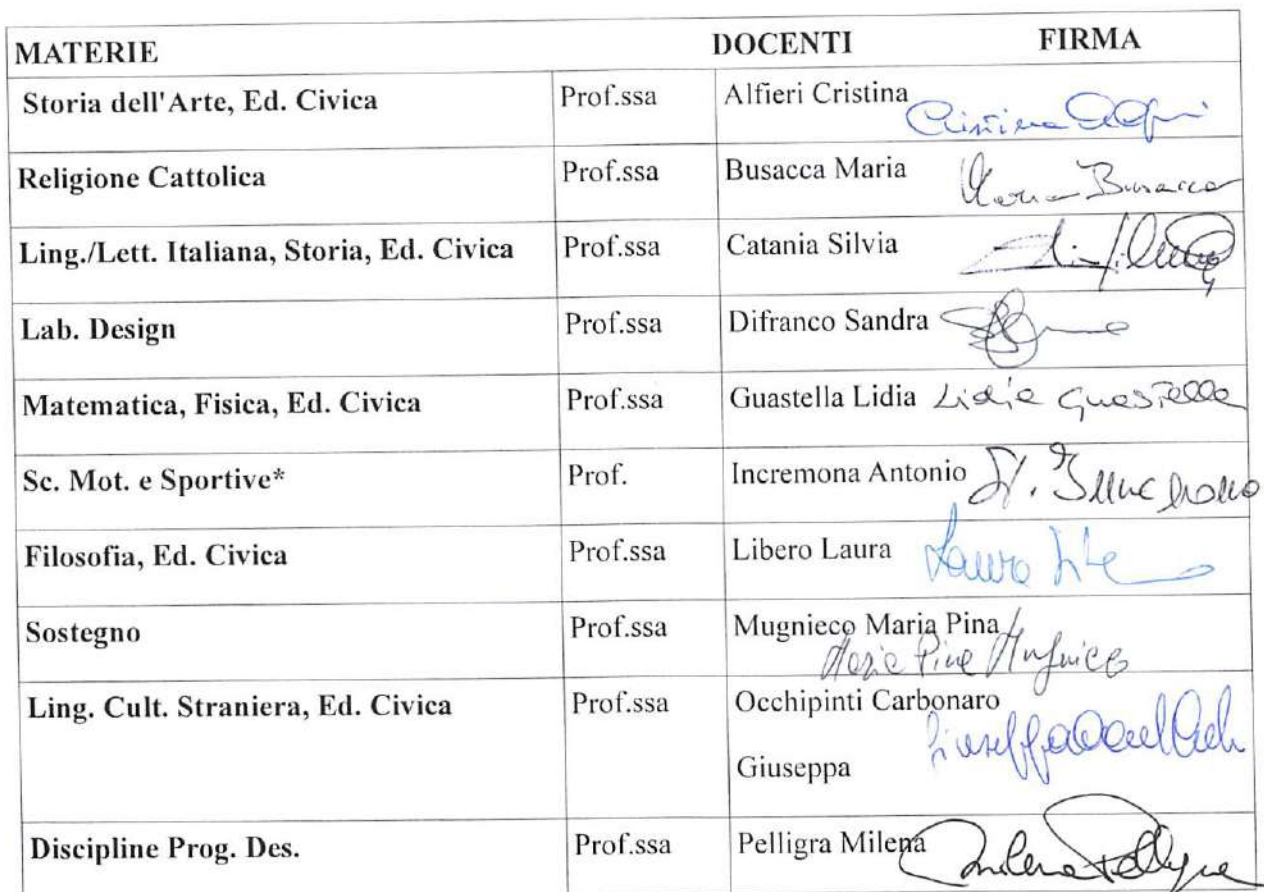 MATERIE DOCENTI FIRMA
Storia dell'Arte, Ed. Civica Prof.ssa Alfieri Cristina Cristina Alfieri
Religione Cattolica Prof.ssa Busacca Maria Maria Busacca
Ling./Lett. Italiana, Storia, Ed. Civica Prof.ssa Catania Silvia
Lab. Design Prof.ssa Difranco Sandra
Matematica, Fisica, Ed. Civica Prof.ssa Guastella Lidia Lidia Guastella
Sc. Mot. e Sportive* Prof. Incremona Antonio
Filosofia, Ed. Civica Prof.ssa Libero Laura Laura
Sostegno Prof.ssa Mugnieco Maria Pina
Maria Pina Mugnieco
Ling. Cult. Straniera, Ed. Civica Prof.ssa Occhipinti Carbonaro
Giuseppa
Giuseppa
Discipline Prog. Des. Prof.ssa Pelligra Milena Milena Pelligra